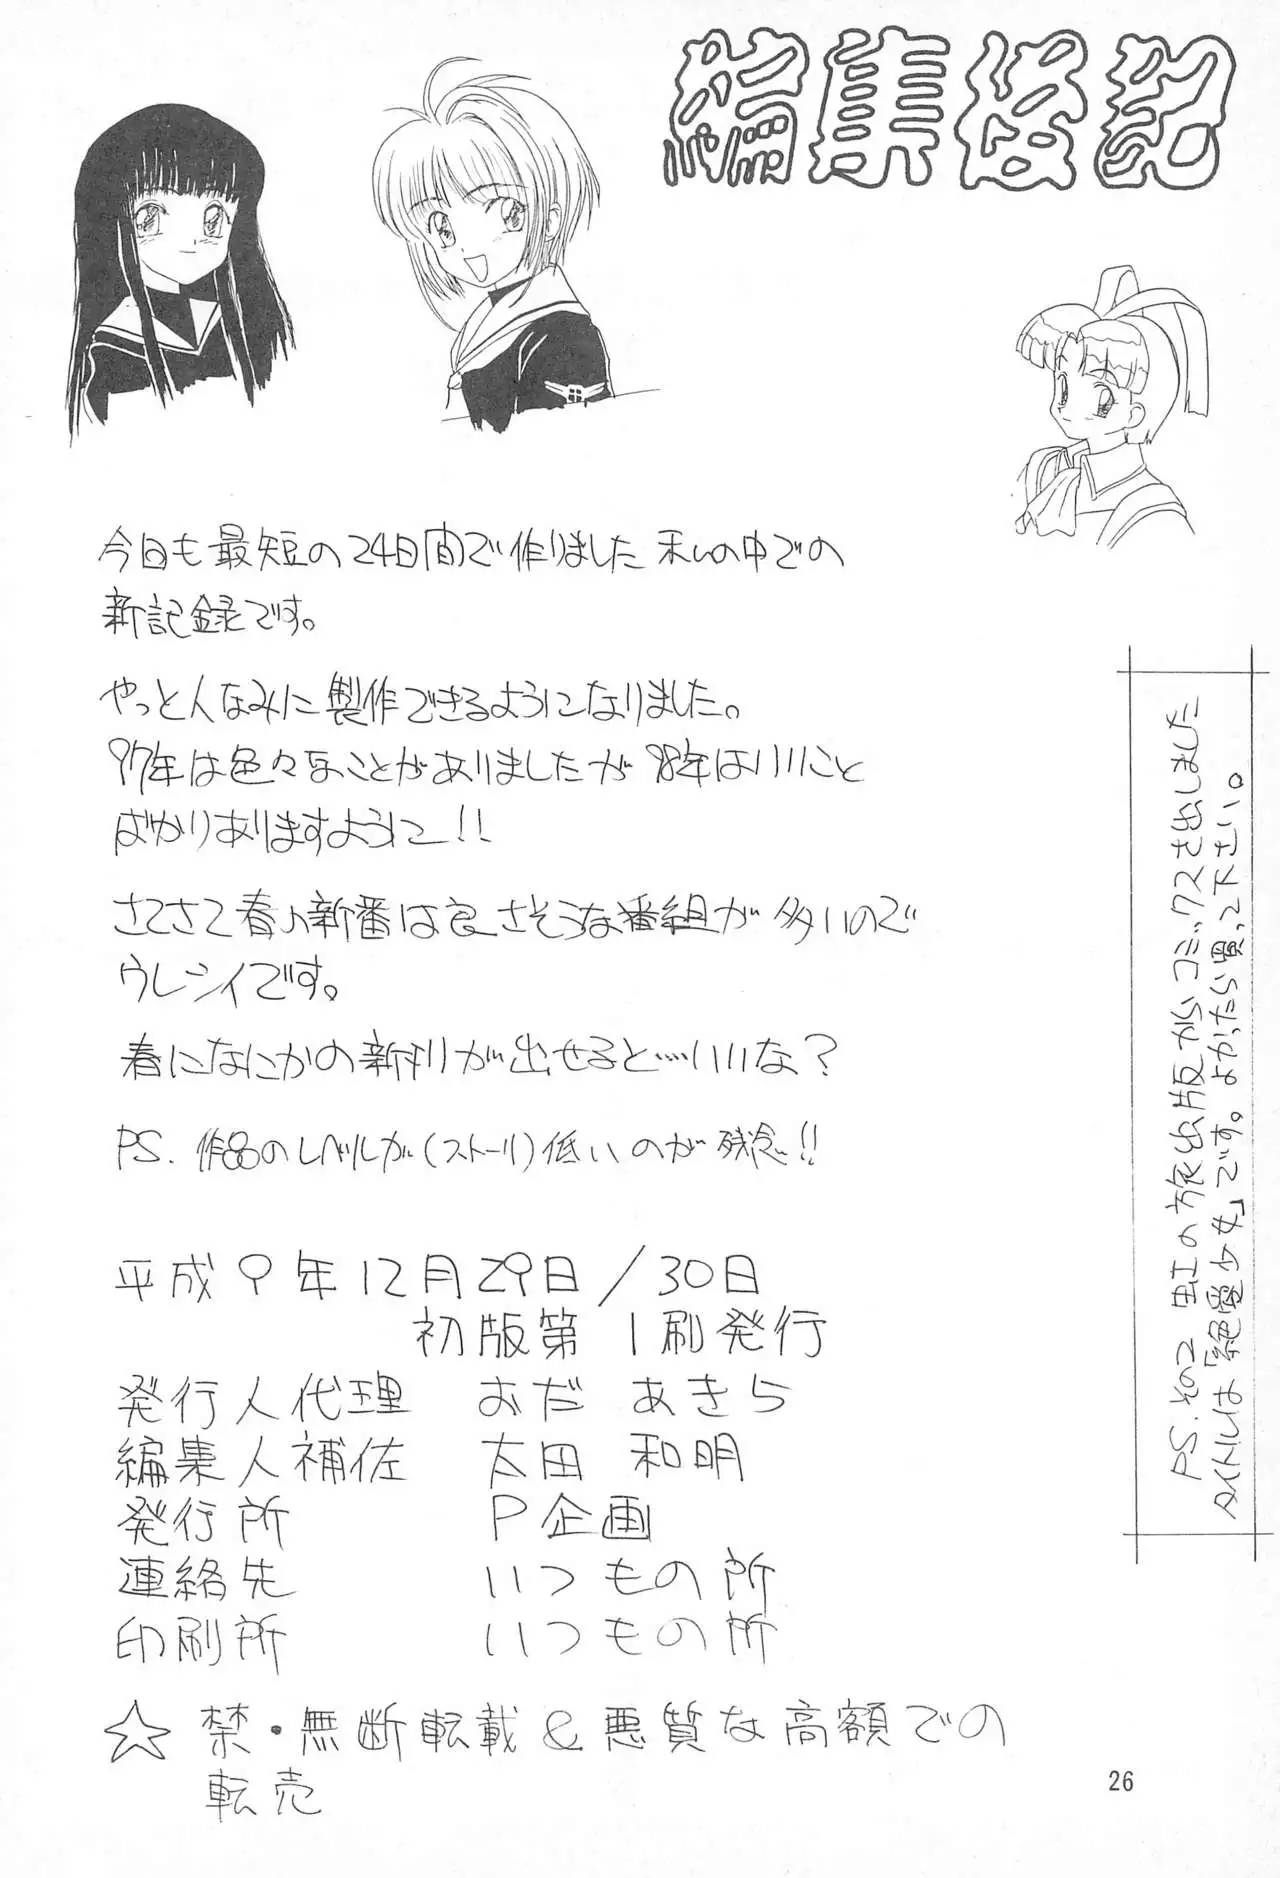 編集後記
今日も最短の24日間で作りました 私の中での
新記録です。
やっと人なみに製作できるようになりました。
97年は色々なことがありましたが 98年はいいこと
ばかりありますように!!
さてさて春の新番は良さそうな番組が多いので
ウレシイです。
春になにかの新刊が出せると…いいな?
PS. 作品のレベルが(ストーリ)低いのが残念!!
平成9年12月29日/30日
初版第1刷発行
発行人代理 おだ あきら
編集人補佐 太田 和明
発行所 P企画
連絡先 いつもの所
印刷所 いつもの所
☆ 禁・無断転載&悪質な高額での
転売
PS.その2 虹の旅出版からコミックスを出しました
タイトルは「絶愛少女」です。よかったら買って下さい。
26